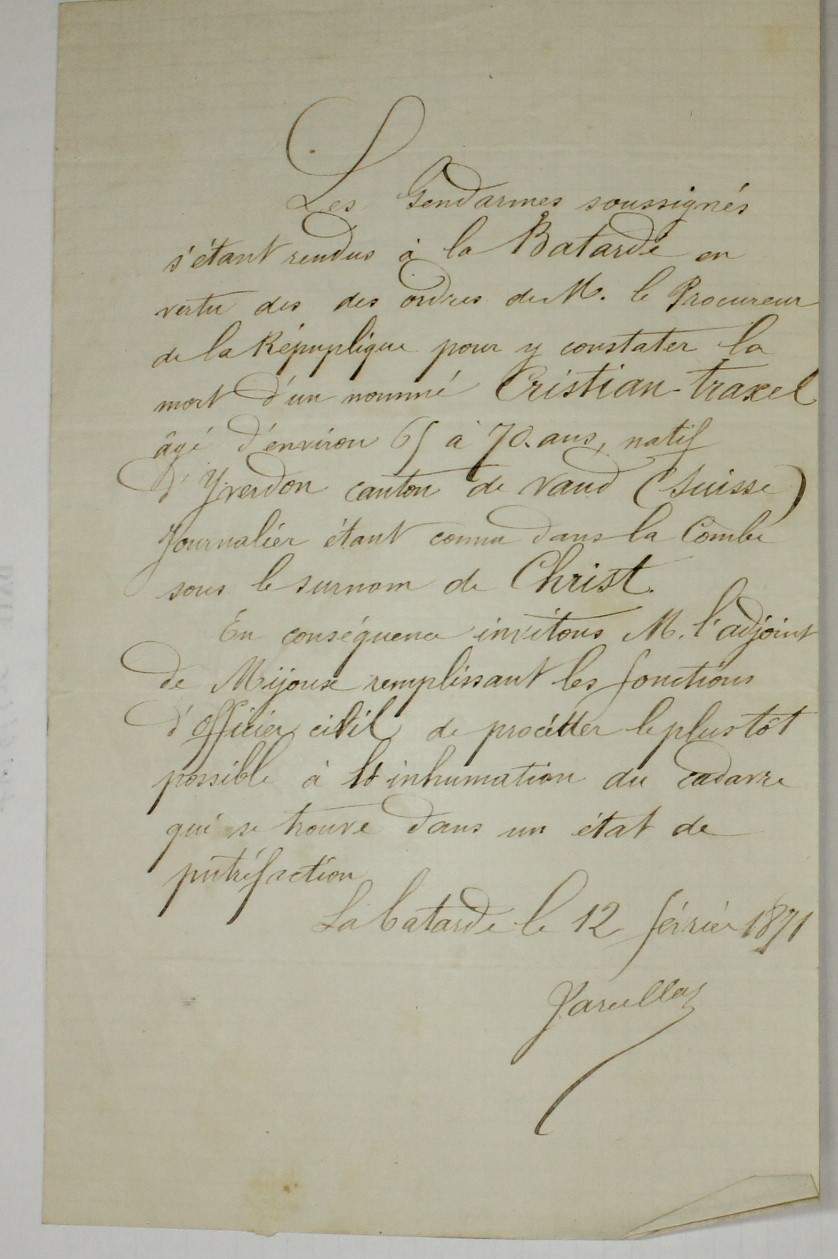 Les Gendarmes soussignés
s'étant rendus à la Batarde en
vertu des des ordres de M. le Procureur
de la Répuplique pour y constater la
mort d'un nommé Cristian traxel
âgé d'environ 65 à 70 ans, natif
d'Yverdon canton de Vaud (Suisse)
Journalier étant connu dans la Combe
sous le surnom de Christ.
En conséquence invitons M. l'adjoint
de Mijoux remplissant les fonctions
d'officier civil, de procéder le plus tôt
possible à l'inhumation du cadavre
qui se trouve dans un état de
putréfaction
La batarde le 12 février 1871